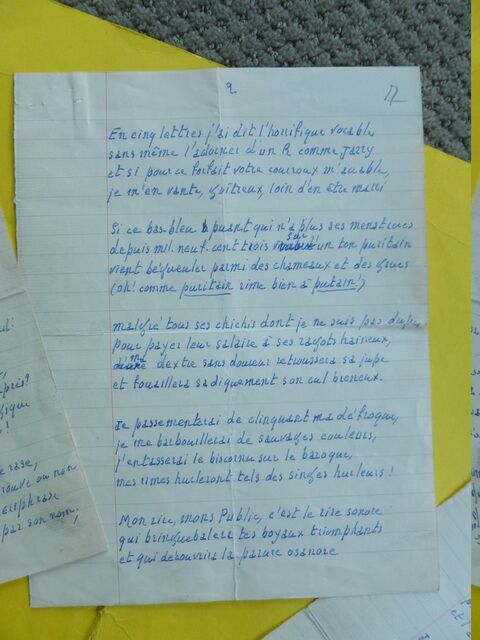 2
17
En cinq lettres j'ai dit l'horrifique vocable
sans même l'adoucer d'un R comme Jarry
et si pour ce forfait votre courroux m'accable,
je m'en vante, goîtreux, loin d'en être marri
Si ce bas-bleu puant qui n'a plus ses menstrues
depuis mil. neuf. cent trois sur un ton puritain
vient bégueuler parmi des chameaux et des grues
(oh! comme puritain rime bien à putain!)
malgré tous ses chichis dont je ne suis pas dupe,
pour payer leur salaire à ses ragots haineux,
ma dextre sans douceur retroussera sa jupe
et fouaillera sadiquement son cul breneux.
Je passementerai de clinquant ma défroque,
je me barbouillerai de sauvages couleurs,
j'entasserai le biscornu sur le baroque,
mes rimes hurleront tels des singes hurleurs!
Mon rire, mons Public, c'est le rire sonore
qui bringuebalera tes boyaux triomphants
et qui découvrira la parure osanore